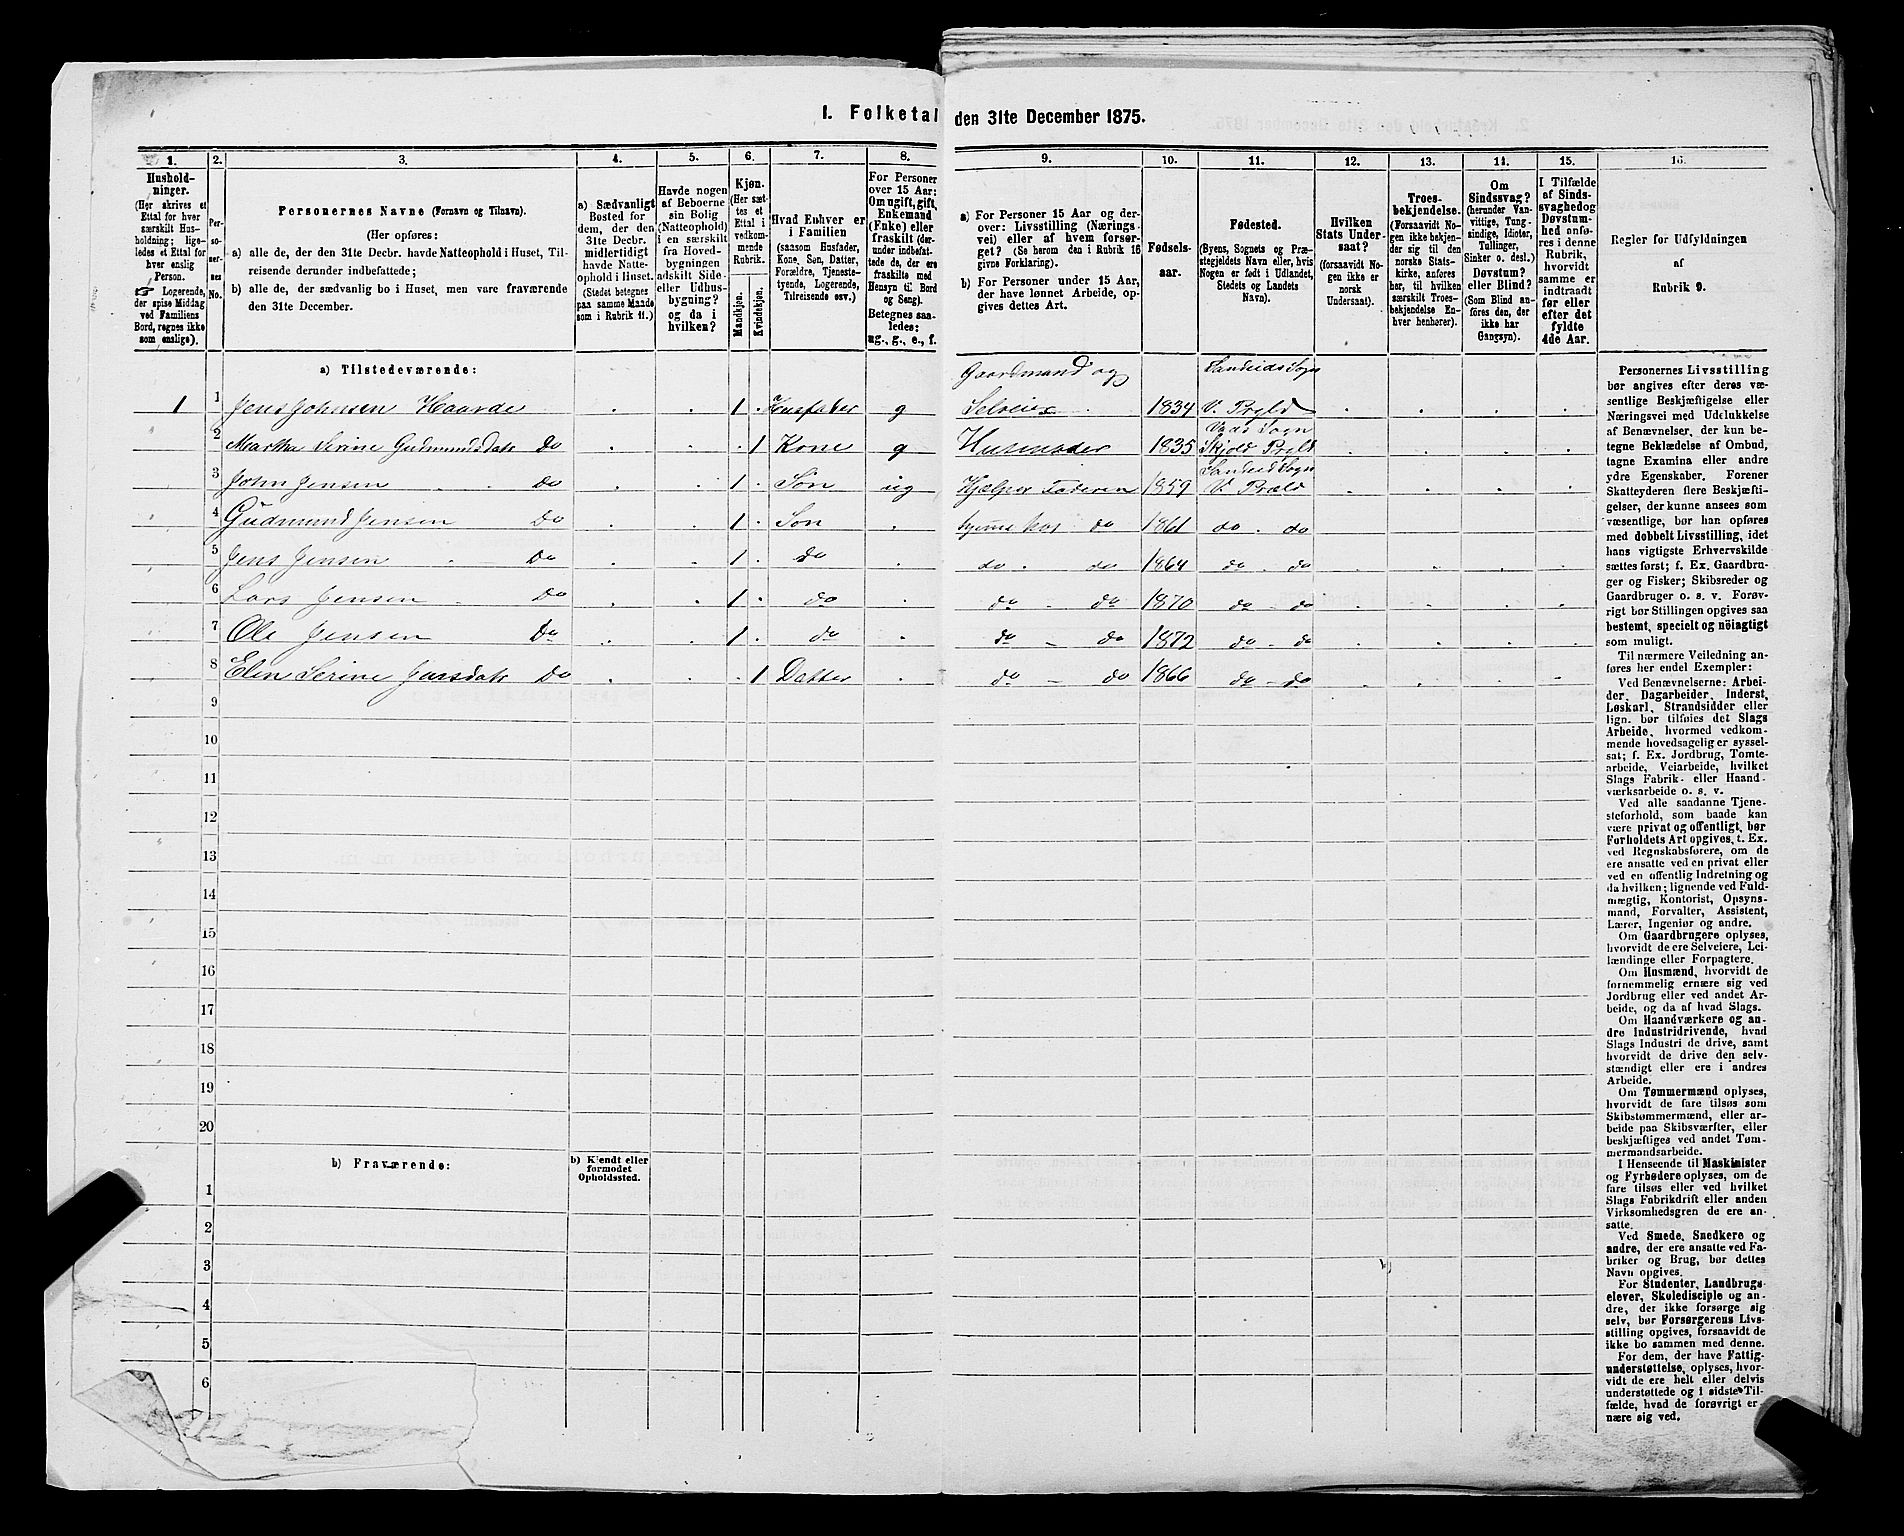 I. Folketal den 31te December 1875.
1. 2. 3. 4. 5. 6. 7. 8. 9. 10. 11. 12. 13. 14. 15. 16.
Hushold-
ninger.
(Her skrives et
Ettal for hver
særskilt Hus-
holdning; lige-
ledes et Ettal for
hver enslig
Person.
☞ Logerende,
der spise Middag
ved Familiens
Bord, regnes ikke
som enslige).
Per-
so-
ner-
nes
No.
Personernes Navne (Fornavn og Tilnavn).
(Her opføres:
a) alle de, der den 31te Decbr. havde Natteophold i Huset, Til-
reisende derunder indbefattede;
b) alle de, der sædvanlig bo i Huset, men vare fraværende
den 31te December.
a) Sædvanligt
Bosted for
dem, der den
31te Decbr.
midlertidigt
havde Natte-
ophold i Huset.
(Stedet betegnes
paa samme Maade
som i Rubrik 11.)
Havde nogen
af Beboerne
sin Bolig
(Natteophold)
i en særskilt
fra Hoved-
bygningen
adskilt Side-
eller Udhus-
bygning?
og da i
hvilken?
Kjøn.
(Her sæt-
tes et
Ettal i
vedkom-
mende
Rubrik.
Mandkjøn.
Kvindekjøn.
Hvad Enhver er
i Familien
(saasom Husfader,
Kone, Søn, Datter,
Forældre, Tjeneste-
tyende, Logerende,
Tilreisende osv.)
For Personer
over 15 Aar:
Om ugift, gift,
Enkemand
(Enke) eller
fraskilt (der-
under indbefat-
tede de, der ere
fraskilte med
Hensyn til Bord
og Seng).
Betegnes saa-
ledes:
ug., g., e., f.
a) For Personer 15 Aar og der-
over: Livsstilling (Nærings-
vei) eller af hvem forsør-
get? (Se herom den i Rubrik 16
givne Forklaring).
b) For Personer under 15 Aar,
der have lønnet Arbeide, op-
gives dettes Art.
Fødsels-
aar.
Fødested.
(Byens, Sognets og Præ-
stegjeldets Navn eller, hvis
Nogen er født i Udlandet,
Stedets og Landets
Navn).
Hvilken
Stats Under-
saat?
(forsaavidt No-
gen ikke er
norsk
Undersaat).
Troes-
bekjendelse.
(Forsaavidt No-
gen ikke bekjen-
der sig til den
norske Stats-
kirke, anføres
her, til hvilken
særskilt Troes-
bekjendelse En-
hver henhører).
Om
Sindssvag?
(herunder Van-
vittige, Tung-
sindige, Idioter,
Tullinger,
Sinker o. desl.)
Døvstum?
eller Blind?
(Som Blind an-
føres den, der
ikke har
Gangsyn).
I Tilfælde
af Sinds-
svaghed og
Døvstum-
hed anfø-
res i denne
Rubrik,
hvorvidt
samme er
indtraadt
før eller
efter det
fyldte
4de Aar.
Regler for Udfyldningen
af
Rubrik 9.
a) Tilstedeværende:
Gaardmand og Sandeids Sogn
1 1 Jens Johnsen Haarde 1 Husfader g Selveier 1834 V. Prgld
Vads Sogn
2 Martha Serine Gudmundsdatr Do 1 Kone g Husmoder 1835 Skjold Prgld
Sandeid Sogn
3 John Jensen Do 1 Søn ug Hjælper Faderen 1859 V. Prgld
4 Gudmund Jensen Do 1 Søn hjemme hos do 1861 do do
5 Jens Jensen Do 1 do do do 1864 do do
6 Lars Jensen Do 1 do do do 1870 do do
7 Ole Jensen Do 1 do do do 1872 do do
8 Elen Serine Jensdatr Do 1 Datter do do 1866 do do
9
10
11
12
13
14
15
16
17
18
19
20
b) Fraværende:
b) Kjendt eller
formodet
Opholdssted.
1
2
3
4
5
6
Personernes Livsstilling
bør angives efter deres væ-
sentlige Beskjæftigelse eller
Næringsvei med Udelukkelse
af Benævnelser, der kun be-
tegne Beklædelse af Ombud,
tagne Examina eller andre
ydre Egenskaber. Forener
Skatteyderen flere Beskjæfti-
gelser, der kunne ansees som
væsentlige, bør han opføres
med dobbelt Livsstilling, idet
hans vigtigste Erhvervskilde
sættes først; f. Ex. Gaardbru-
ger og Fisker; Skibsreder og
Gaardbruger o. s. v. Forøv-
rigt bør Stillingen opgives saa
bestemt, specielt og nøiagtigt
som muligt.
Til nærmere Veiledning an-
føres her endel Exempler:
Ved Benævnelserne: Arbei-
der, Dagarbeider, Inderst,
Løskarl, Strandsidder eller
lign. bør tilføies det Slags
Arbeide, hvormed vedkom-
mende hovedsagelig er syssel-
sat; f. Ex. Jordbrug, Tomte-
arbeide, Veiarbeide, hvilket
Slags Fabrik- eller Haand-
værksarbeide o. s. v.
Ved alle saadanne Tjene-
steforhold, som baade kan
være privat og offentligt, bør
Forholdets Art opgives, t. Ex.
ved Regnskabsførere, om de
ere ansatte ved en privat eller
ved en offentlig Indretning og
da hvilken; lignende ved Fuld-
mægtig, Kontorist, Opsyns-
mand, Forvalter, Assistent,
Lærer, Ingeniør og andre.
Om Gaardbrugere oplyses,
hvorvidt de ere Selveiere, Lei-
lændinge eller Forpagtere.
Om Husmænd, hvorvidt de
fornemmelig ernære sig ved
Jordbrug eller ved andet Ar-
beide, og da af hvad Slags.
Om Haandværkere og an-
dre Industridrivende, hvad
Slags Industri de drive, samt
hvorvidt de drive den selv-
stændigt eller ere i andres
Arbeide.
Om Tømmermænd oplyses,
hvorvidt de fare tilsøs som
Skibstømmermænd, eller ar-
beide paa Skibsværfter, eller
beskjæftiges ved andet Tøm-
mermandsarbeide.
I Henseende til Maskinister
og Fyrbødere oplyses, om de
fare tilsøs eller ved hvilket
Slags Fabrikdrift eller anden
Virksomhedsgren de ere an-
satte.
Ved Smede, Snedkere og
andre, der ere ansatte ved Fa-
briker og Brug, bør dettes
Navn opgives.
For Studenter, Landbrugs-
elever, Skoledisciple og an-
dre, der ikke forsørge sig
selv, bør Forsørgerens Livs-
stilling opgives, forsaavidt de
ikke bo sammen med denne.
For dem, der have Fattig-
understøttelse, oplyses, hvor-
vidt de ere helt eller delvis
understøttede og i sidste Til-
fælde, hvad de forøvrigt er-
nære sig ved.